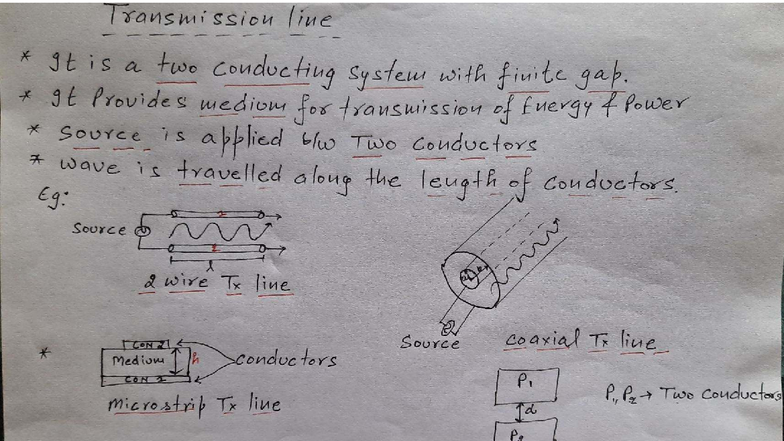 Transmission line
* It is a two conducting system with finite gap.
* It Provides medium for transmission of Energy & Power
* Source is applied b/w Two conductors
* wave is travelled along the length of conductors.
Eg:
Source
2
2
l
2 wire Tx line
Source
coaxial Tx line
*
CON 2
Medium
h
CON 1
conductors
Microstrip Tx line
P1
d
P2
P1, P2 → Two Conductors